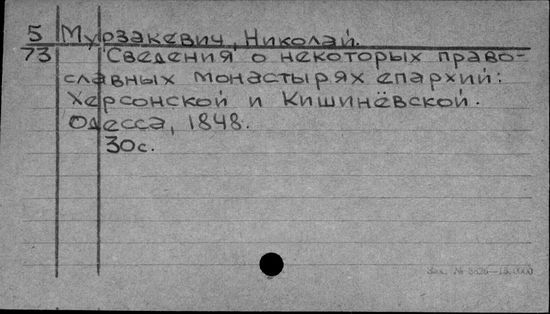 5 Мурзакевич, Николай.
73 Сведения о некоторых право-
славных монастырях епархий:
Херсонской и Кишинёвской.
Одесса, 1848.
30с.